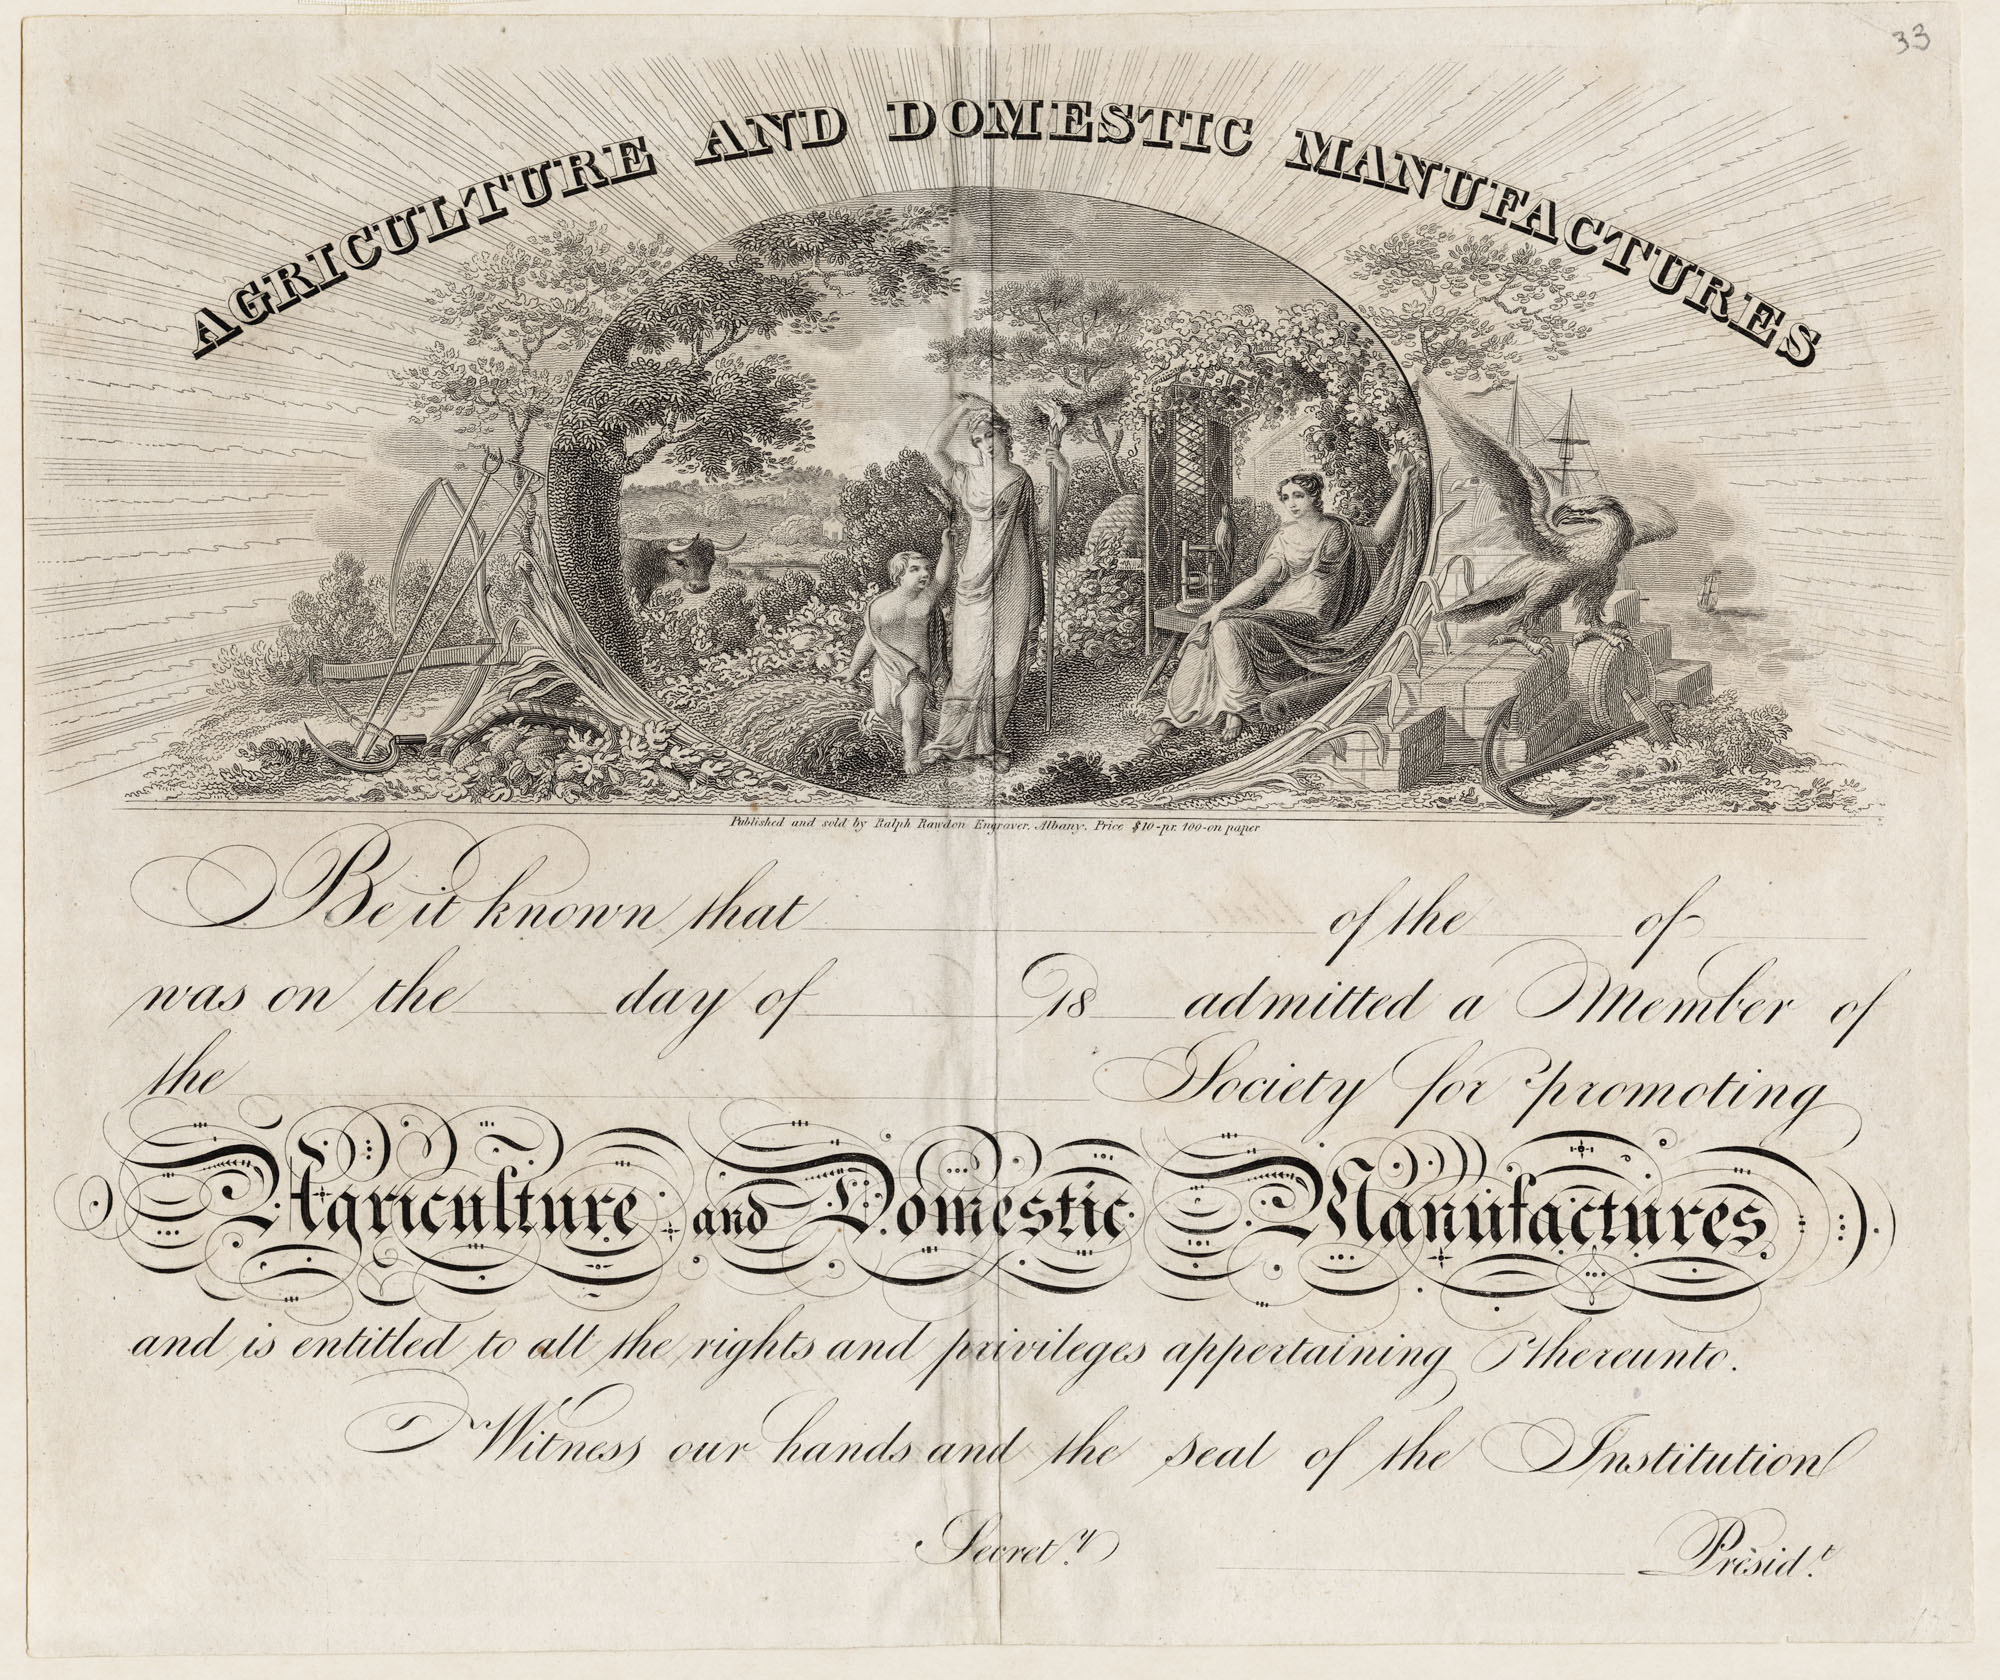 33
AGRICULTURE AND DOMESTIC MANUFACTURES
Published and sold by Ralph Rawdon Engraver, Albany. Price $10 pr. 100 on paper
Be it known that of the of
was on the day of 18 admitted a Member of
the Society for promoting
Agriculture and Domestic Manufactures
and is entitled to all the rights and privileges appertaining thereunto.
Witness our hands and the seal of the Institution
Secret.y Presid.t